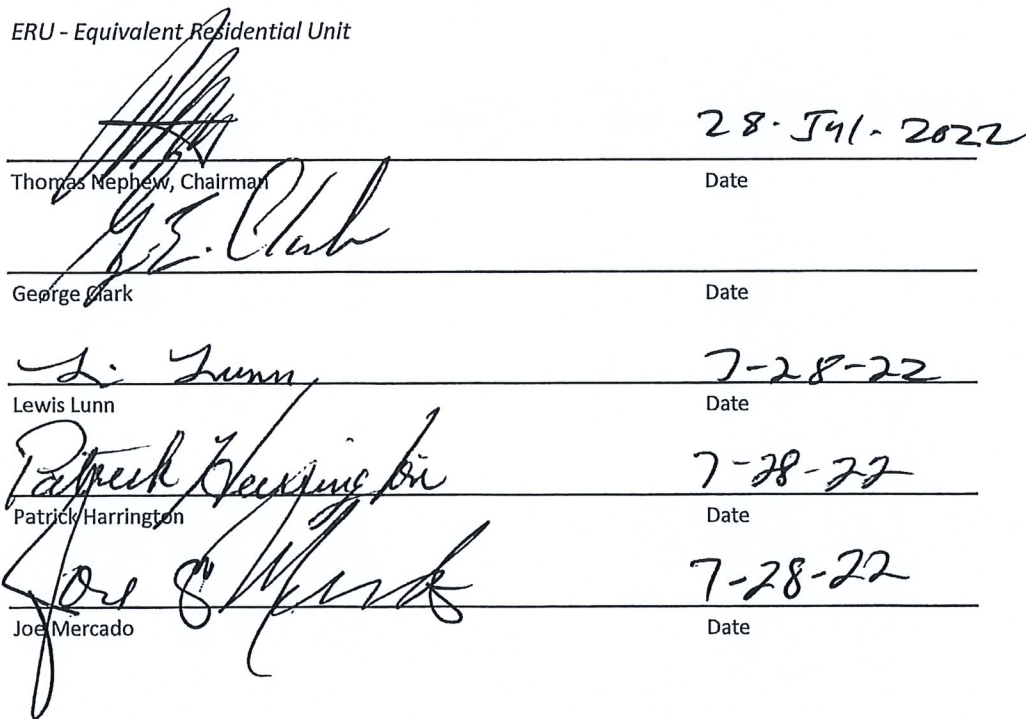 ERU - Equivalent Residential Unit
28-Jul-2022
Thomas Nephew, Chairman Date
G. E. Clark
George Clark Date
L. Lunn 7-28-22
Lewis Lunn Date
Patrick Harrington 7-28-22
Patrick Harrington Date
Joe Mercado 7-28-22
Joe Mercado Date